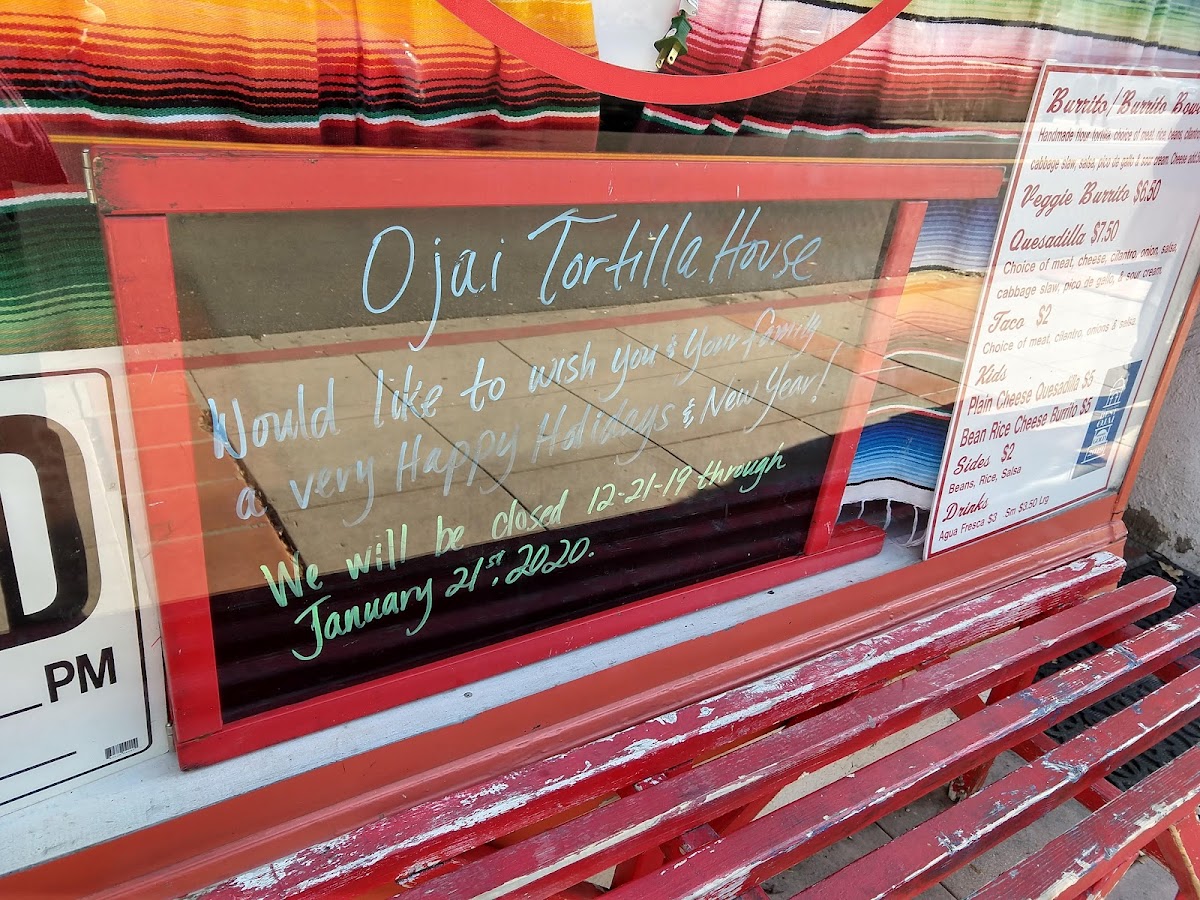 Ojai Tortilla House
Would like to wish you & your family
a very Happy Holidays & New Year!
We will be closed 12-21-19 through
January 21st, 2020.
PM
Burrito/Burrito
Handmade flour tortilla, choice of meat, rice, beans,
cabbage slaw, salsa, pico de gallo & sour cream.
Veggie Burrito $6.50
Quesadilla $7.50
Choice of meat, cheese, cilantro, onion, salsa,
cabbage slaw, pico de gallo, & sour cream.
Taco $2
Choice of meat, cilantro, onions & salsa.
Kids
Plain Cheese Quesadilla $5
Bean Rice Cheese Burrito $5
Sides $2
Beans, Rice, Salsa
Drinks
Agua Fresca $3 Sm $3.50 Lrg